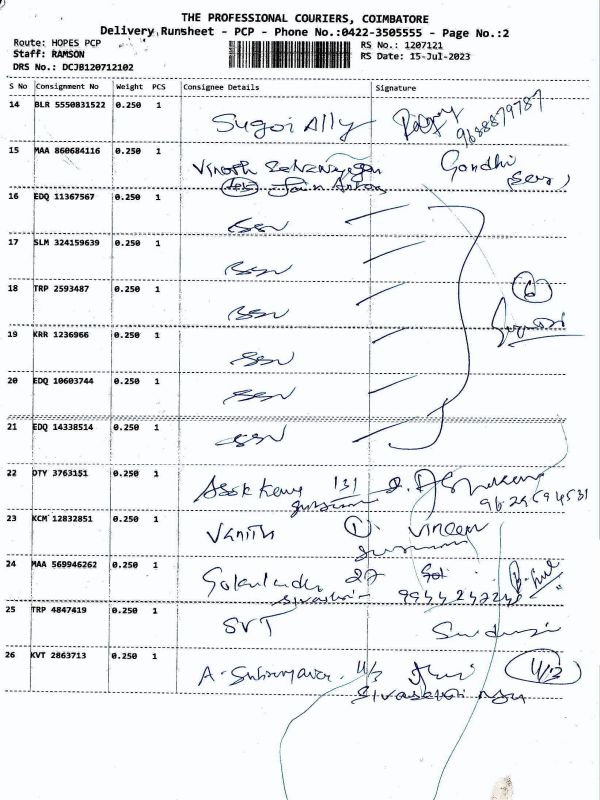 THE PROFESSIONAL COURIERS, COIMBATORE
Delivery Runsheet - PCP - Phone No.:0422-3505555 - Page No.:2
Route: HOPES PCP
RS No.: 1207121
Staff: RAMSON
RS Date: 15-Jul-2023
DRS No.: DCJB120712102
S No Consignment No Weight PCS Consignee Details Signature
14 BLR 5550831522 0.250 1 Sugoi Ally 9688879787
15 MAA 860684116 0.250 1 Vinoth Gandhi
16 EDQ 11367567 0.250 1 BSN
17 SLM 324159639 0.250 1 BSN
18 TRP 2593487 0.250 1 BSN 6
19 KRR 1236966 0.250 1 BSN
20 EDQ 10603744 0.250 1 BSN
21 EDQ 14338514 0.250 1 BSN
22 DTY 3763151 0.250 1 131
23 KCM 12832851 0.250 1 Vanith 1
24 MAA 569946262 0.250 1 27
25 TRP 4847419 0.250 1 SVT
26 KVT 2863713 0.250 1 11/3 11/3